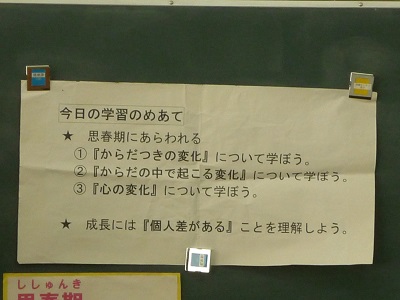 今日の学習のめあて
★ 思春期にあらわれる
①『からだつきの変化』について学ぼう。
②『からだの中で起こる変化』について学ぼう。
③『心の変化』について学ぼう。
★ 成長には『個人差がある』ことを理解しよう。
ししゅんき
思春期